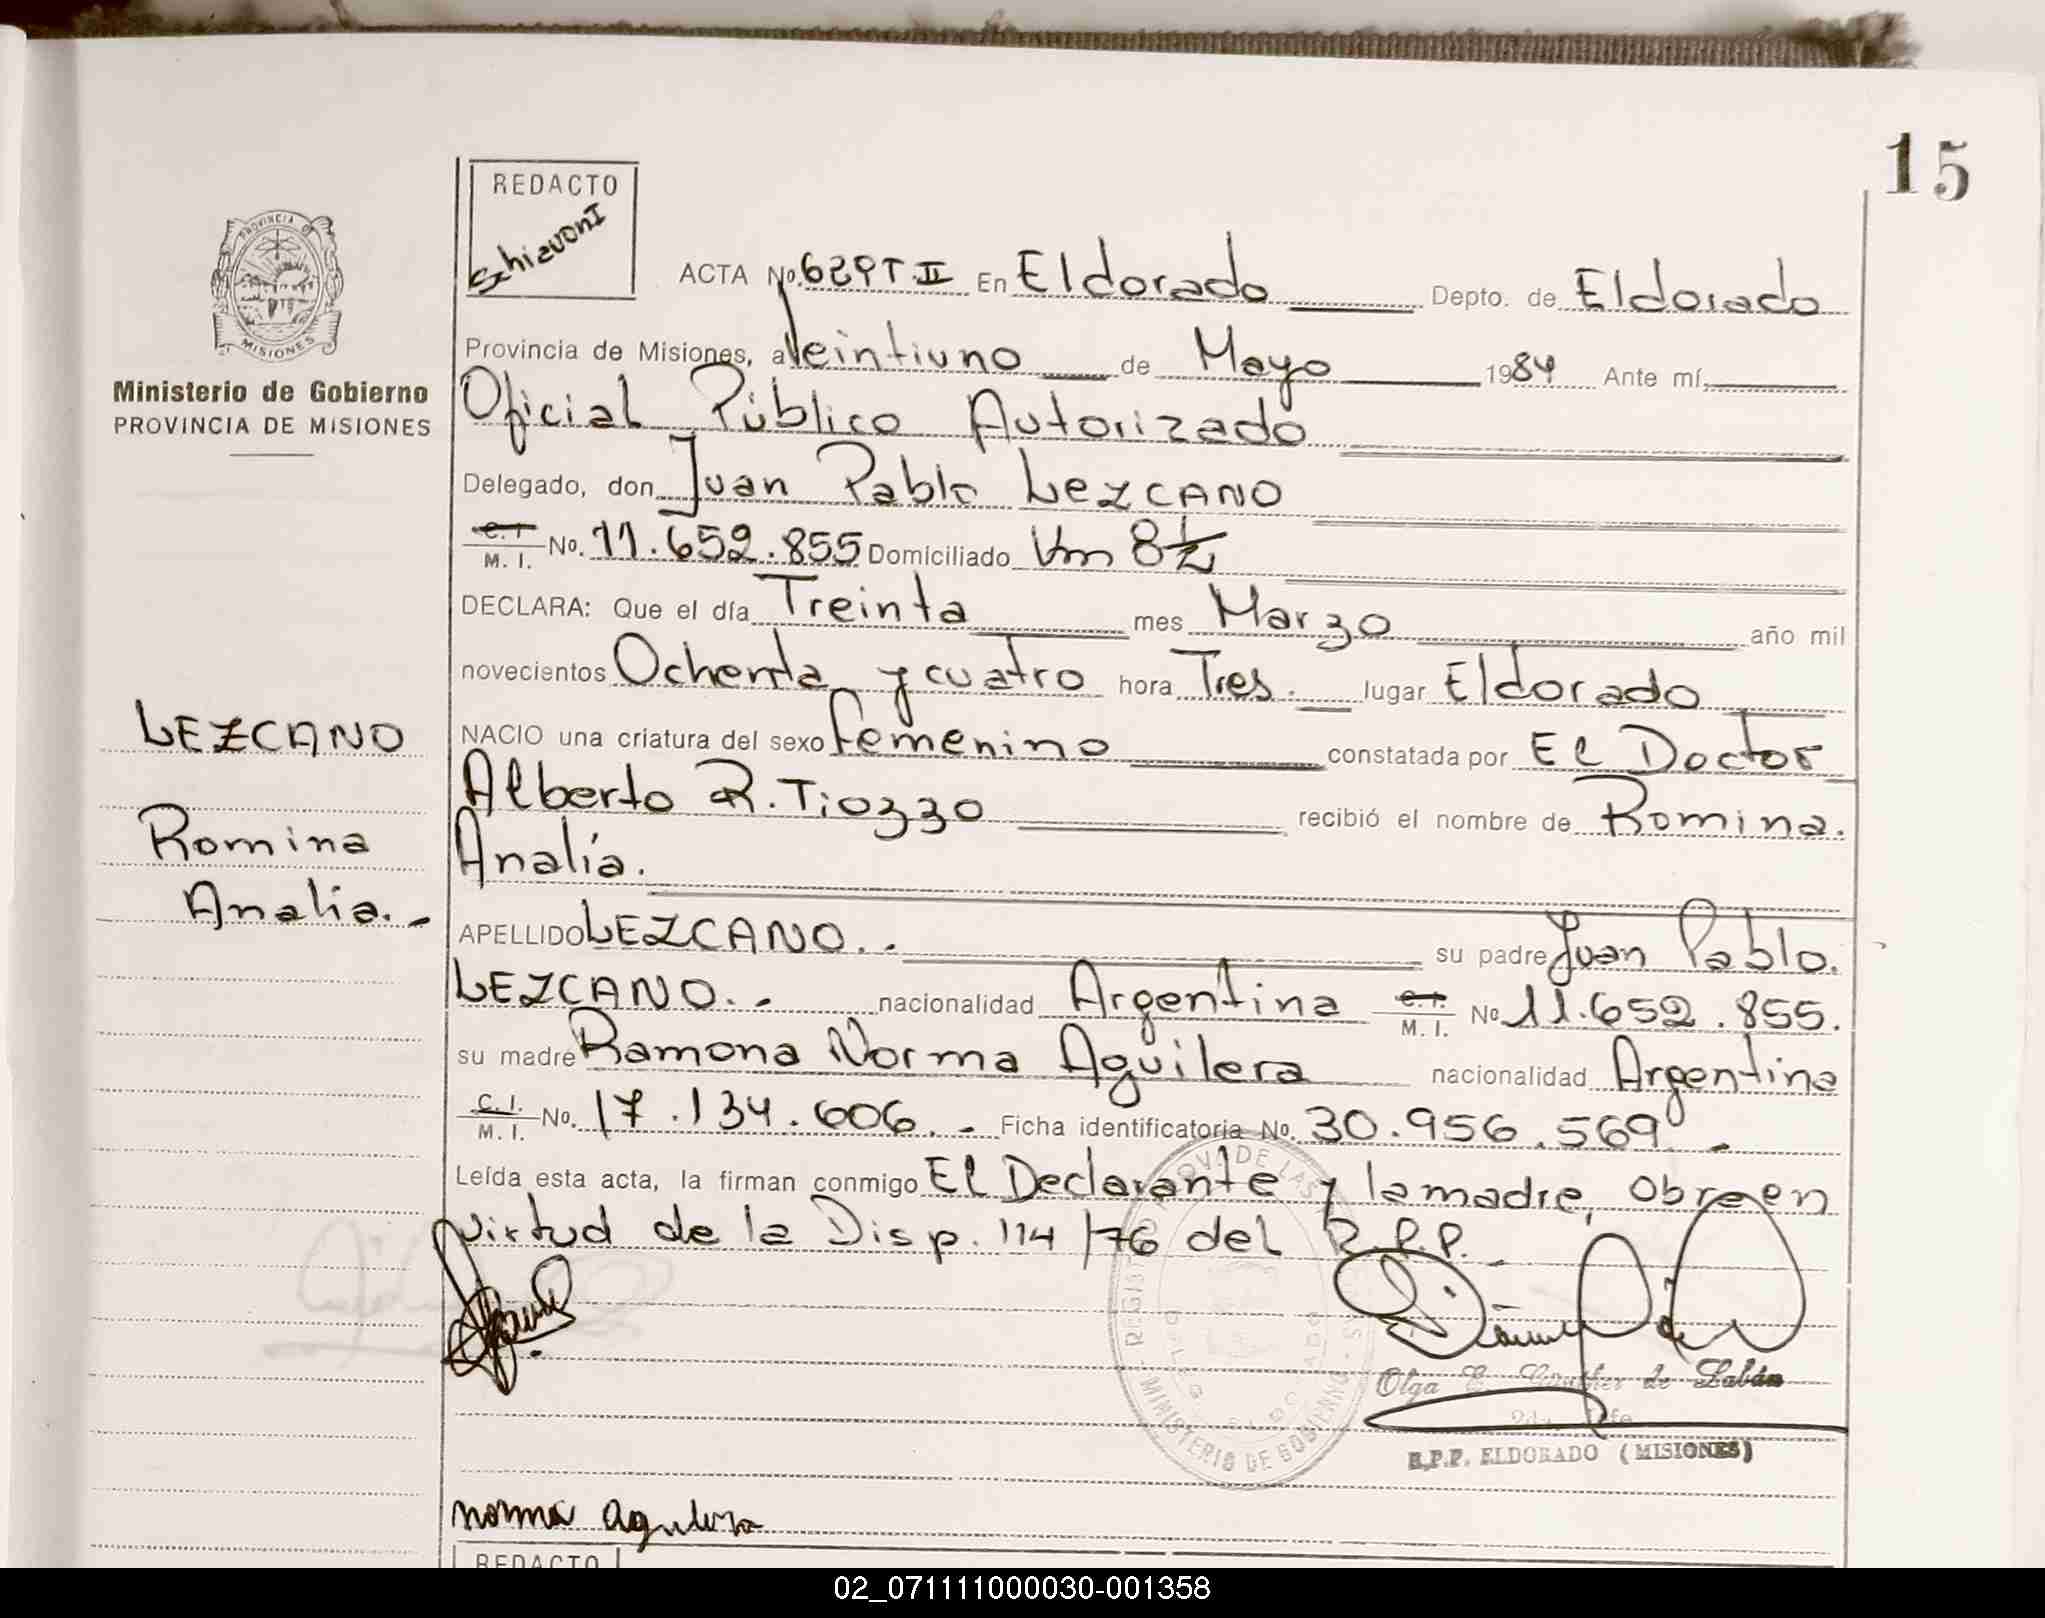 15
REDACTO
SchiavonI
PROVINCIA
MISIONES
Ministerio de Gobierno
PROVINCIA DE MISIONES
ACTA No. 629 T. II En Eldorado Depto. de Eldorado
Provincia de Misiones, a Veintiuno de Mayo 1984 Ante mí,
Oficial Público Autorizado
Delegado, don Juan Pablo LEZCANO
C. I. M. I. No. 11.652.855 Domiciliado Km 8 1/2
DECLARA: Que el día Treinta mes Marzo año mil
novecientos Ochenta y cuatro hora Tres. lugar Eldorado
NACIO una criatura del sexo femenino constatada por El Doctor
Alberto R. Tiozzo recibió el nombre de Romina.
Analía.
LEZCANO
Romina
Analía.-
APELLIDO LEZCANO.- su padre Juan Pablo.
LEZCANO.- nacionalidad Argentina C. I. M. I. No 11.652.855.
su madre Ramona Norma Aguilera nacionalidad Argentina
C. I. M. I. No. 17.134.606.- Ficha identificatoria No. 30.956.569.-
Leída esta acta, la firman conmigo El Declarante y la madre, obra en
virtud de la Disp. 114/76 del R.P.P.
MINISTERIO DE GOBIERNO
Olga de Labán
R.P.P. ELDORADO (MISIONES)
norma aguilera
REDACTO
02_071111000030-001358